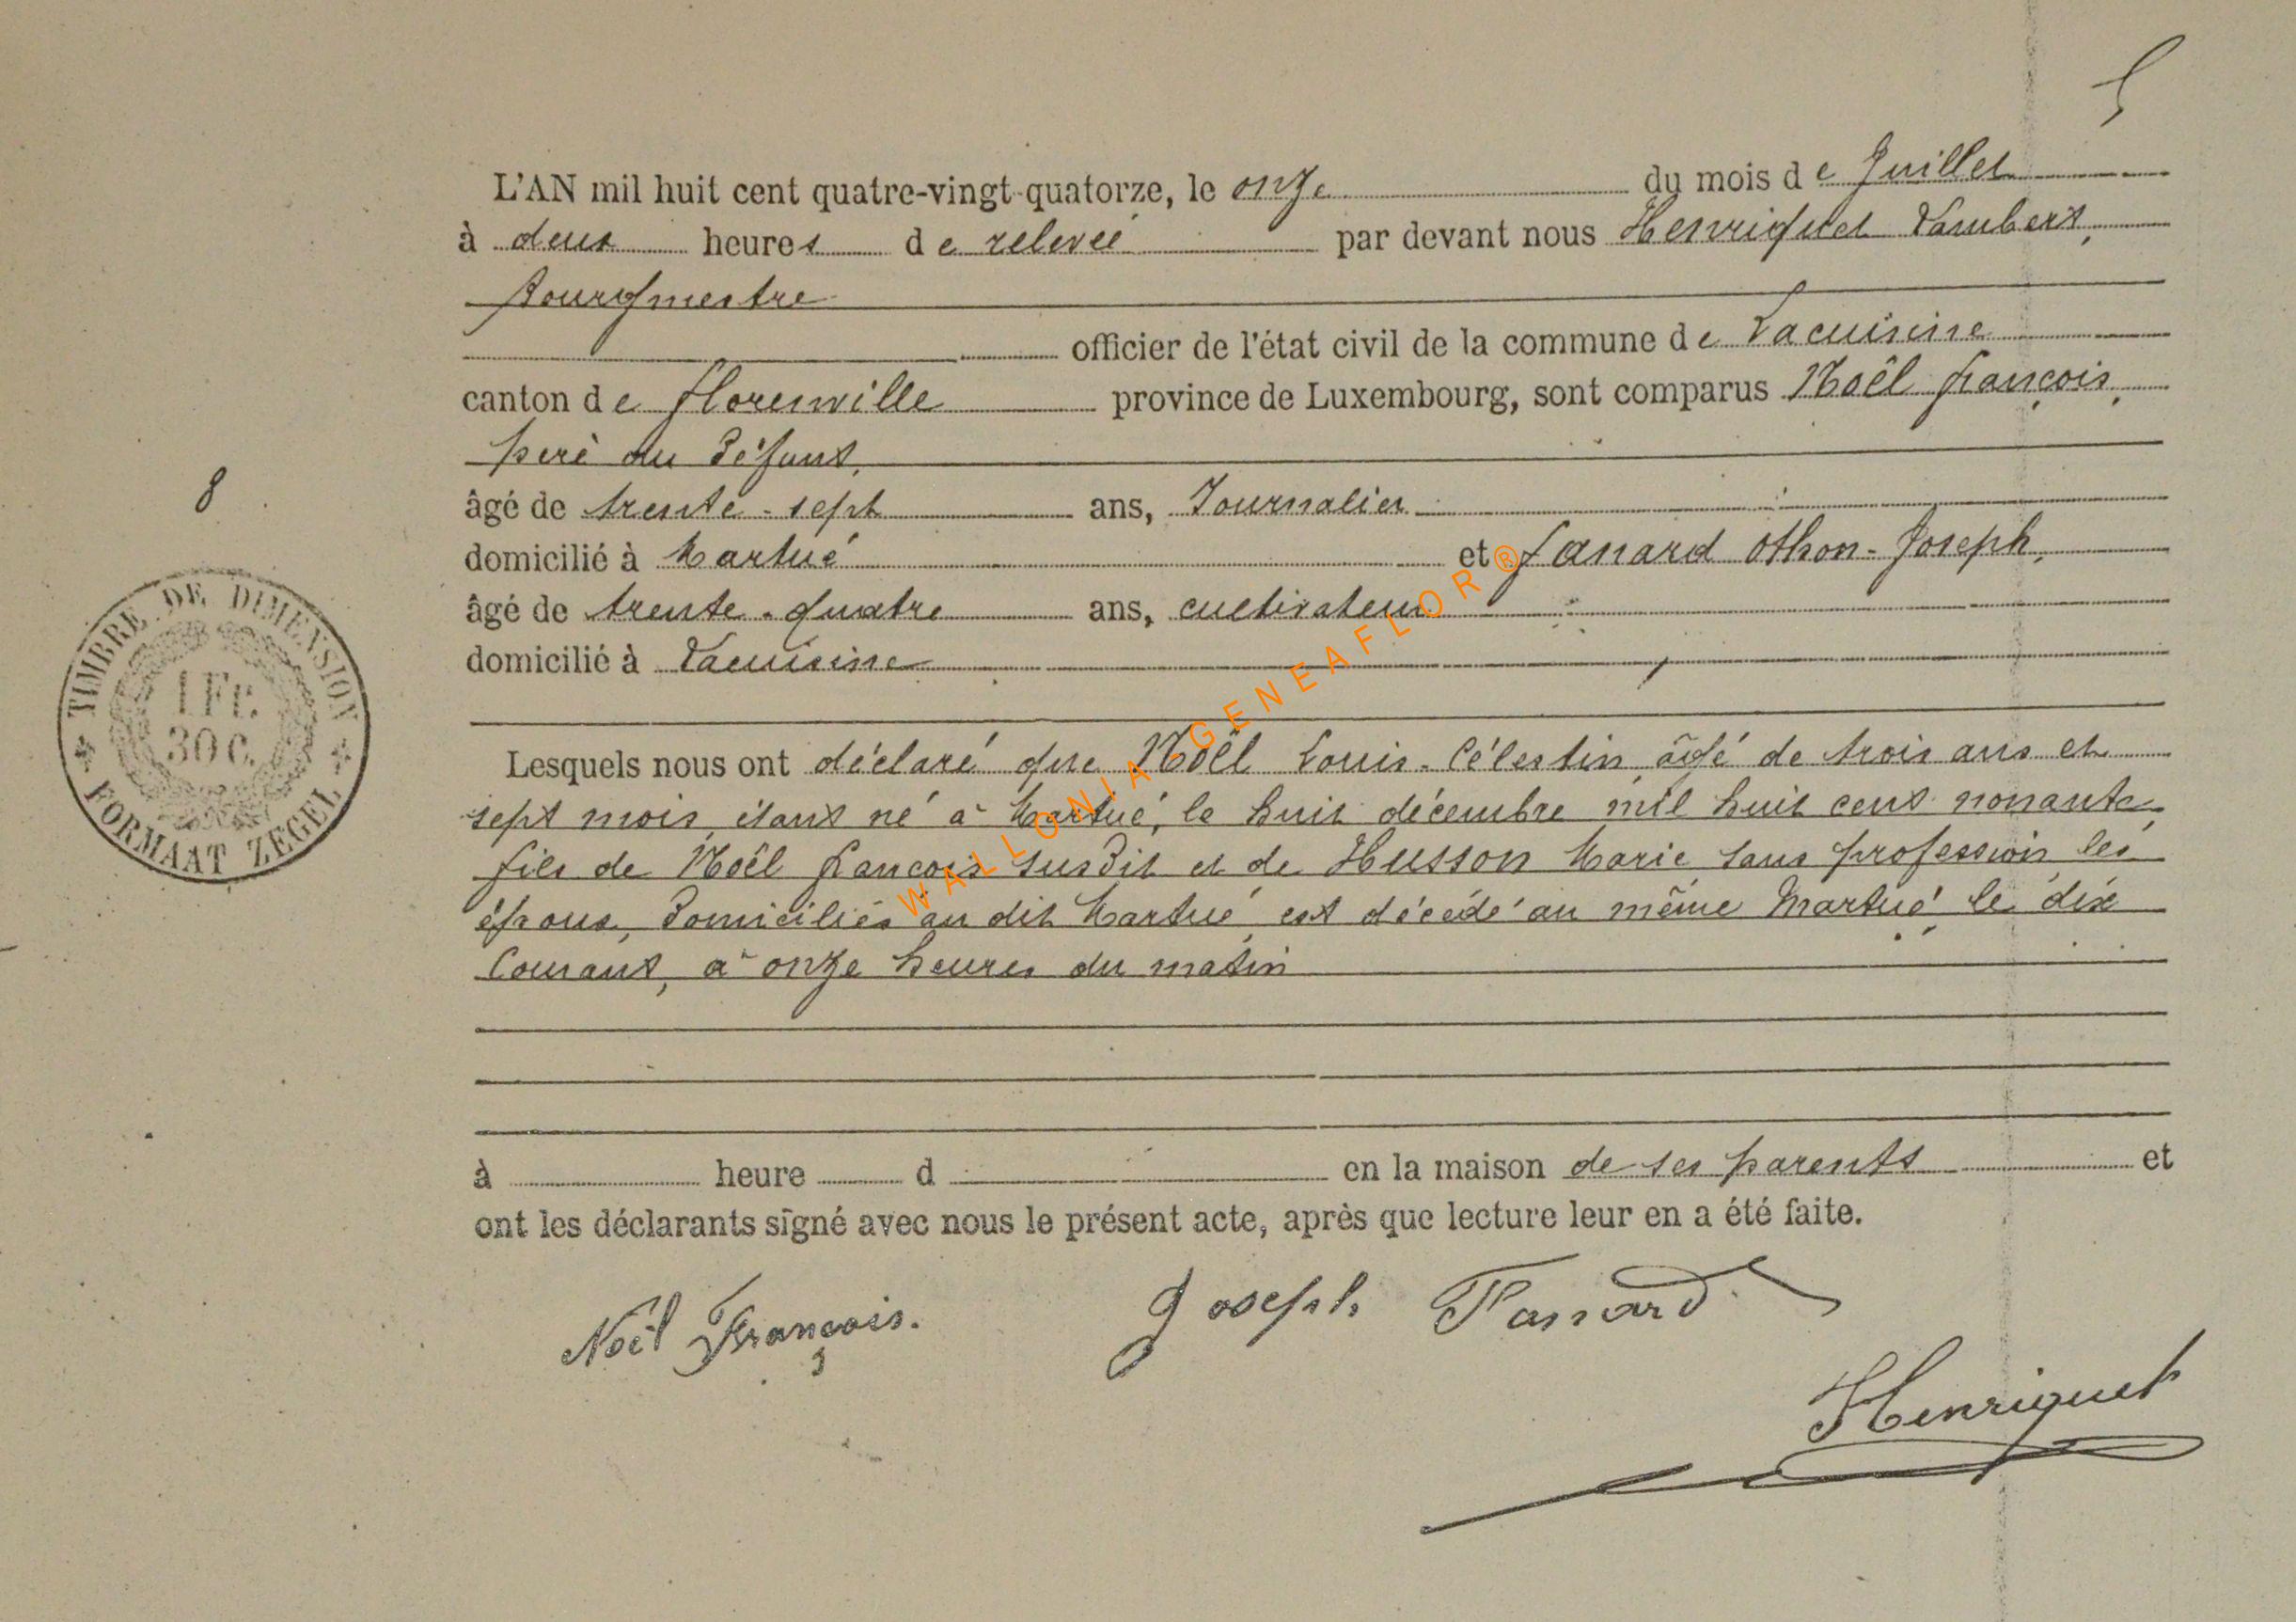 5
L'AN mil huit cent quatre-vingt-quatorze, le onze du mois de Juillet
à deux heures de relevée par devant nous Henriquet Lambert,
Bourgmestre
officier de l'état civil de la commune de Lacuisine
canton de Florenville province de Luxembourg, sont comparus Noël françois,
père du défunt,
8
âgé de trente-sept ans, Journalier
domicilié à Martué et fanard Othon-Joseph,
âgé de trente-quatre ans, cultivateur
domicilié à Lacuisine
TIMBRE DE DIMENSION
1 Fr.
30 C.
FORMAAT ZEGEL
WALLONIA GENEAFLOR®
Lesquels nous ont déclaré que Noël Louis-Célestin, âgé de trois ans et
sept mois, étant né à Martué, le huit décembre mil huit cent nonante,
fils de Noël françois susdit et de Husson Marie sans profession, les
époux, domiciliés au dit Martué, est décédé au même Martué, le dix
Courant, à onze heures du matin
à heure d en la maison de ses parents et
ont les déclarants signé avec nous le présent acte, après que lecture leur en a été faite.
Noël François.
Joseph Fanard
Henriquet